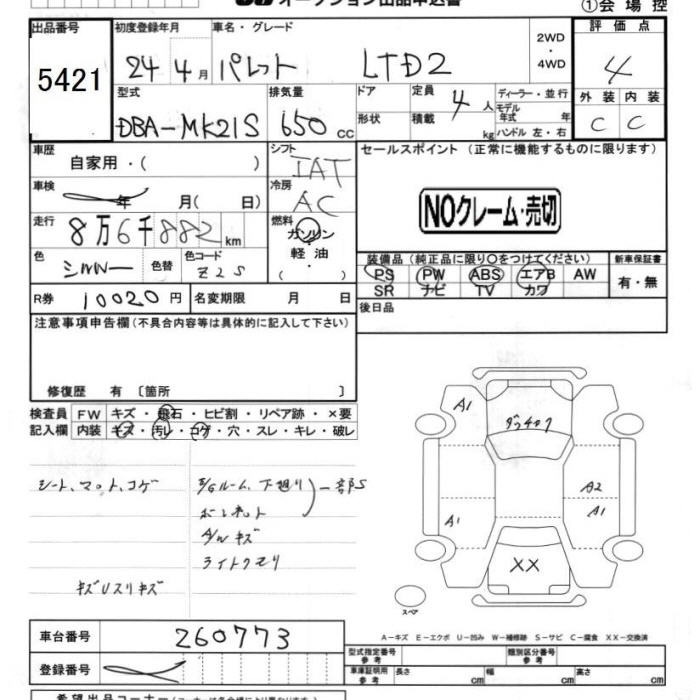 オークション出品申込書
①会場控
出品番号 5421
初度登録年月 24年 4月
車名・グレード パレット LTD2
2WD・4WD
評価点 4
型式 DBA-MK21S
排気量 650cc
ドア 形状
定員 4人
積載 kg
ディーラー・並行
モデル年式 年
ハンドル 左・右
外装 C 内装 C
車歴 自家用・( )
シフト IAT
セールスポイント (正常に機能するものに限ります)
NOクレーム・売切
車検 年 月( 日)
冷房 AC
走行 8万6千882km
燃料 ガソリン・軽油・( )
色 シルバー 色替 色コード Z2S
装備品 (純正品に限り〇をつけてください)
PS PW ABS エアB AW
SR ナビ TV カワ
新車保証書 有・無
R券 10020円 名変期限 月 日
後日品
注意事項申告欄(不具合内容等は具体的に記入して下さい)
修復歴 有 〔箇所 〕
検査員記入欄
FW キズ・飛石・ヒビ割・リペア跡・×要
内装 キズ・汚レ・コゲ・穴・スレ・キレ・破レ
シート、マット、コゲ
E/Gルーム、下廻り 一部S
ボンネット
A/Wキズ
ライトクモリ
キズUスリキズ
A1
A1
A2
A1
XX
スペア
A-キズ E-エクボ U-凹み W-補修跡 S-サビ C-腐食 XX-交換済
車台番号 260773
登録番号
型式指定番号 参考
類別区分番号 参考
車庫証明用 参考 長さ cm 幅 cm 高さ cm
希望出品コーナー